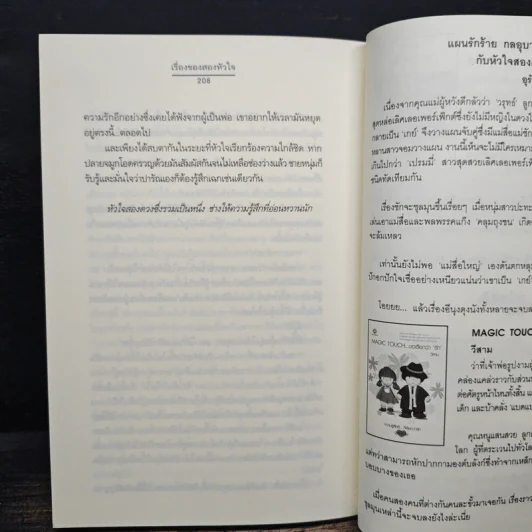 เรื่องของสองหัวใจ
208
ความรักอีกอย่างซึ่งเคยได้ฟังจากผู้เป็นพ่อ เขาอยากให้เวลามันหยุด
อยู่ตรงนี้...ตลอดไป
และเพียงได้สบตากันในระยะที่หัวใจเรียกร้องความใกล้ชิด หาก
ปลายจมูกโอดครวญด้วยมันสัมผัสกันจนไม่เหลือช่องว่างแล้ว ชายหนุ่มก็
รับรู้และมั่นใจว่าปารัณเองก็ต้องรู้สึกเฉกเช่นเดียวกัน
หัวใจสองดวงซึ่งรวมเป็นหนึ่ง ช่างให้ความรู้สึกที่อ่อนหวานนัก
แผนรักร้าย กลอุบา
กับหัวใจสอง
เนื่องจากคุณแม่ผู้หวังดีกลัวว่า 'วรุทธ์' ลูก
สุดหล่อเลิศเลอเพอร์เฟ็กต์ซึ่งยังไม่มีหญิงในดวงใ
กลายเป็น 'เกย์' จึงวางแผนจับคู่ซึ่งมีแม่สื่อแม่ชัก
หลานสาวจอมวางแผน งานนี้เห็นจะไม่มีใครเหมา
เกินไปกว่า 'เปรมมี่' สาวสุดสวยเลิศเลอเพอร์เฟ็
ชนิดทัดเทียมกัน
เรื่องชักจะชุลมุนขึ้นเรื่อยๆ เมื่อหนุ่มสาวปะทะ
เล่นเอาแม่สื่อและพลพรรคแก๊ง 'คลุมถุงชน' เกิด
จะล้มเหลว
เท่านั้นยังไม่พอ 'แม่สื่อใหญ่' เองดันตกหลุม
ปักอกปักใจเชื่ออย่างเหนียวแน่นว่าเขาเป็น 'เกย์'
โอยยย... แล้วเรื่องอีนุงตุงนังทั้งหลายจะจบล
MAGIC TOUC
วีสาม
ว่าที่เจ้าพ่อรูปงามผู้
คล่องแคล่วราวกับส่วนห
ต่อศัตรูหน้าไหนทั้งสิ้น แ
เด็ก และบ้าคลั่ง 'แบคแบ
คุณหนูแสนสวย ลูก
โลก ผู้ที่ตระเวนไปทั่วโล
แต่ว่าสามารถหักปากกามองต์บลังก์ซึ่งทำจากเหล็ก
แบบบางของเธอ
เมื่อคนสองคนที่ต่างกันคนละขั้วมาเจอกัน เรื่องราว
ชุลมุนเหล่านี้จะจบลงยังไงล่ะเนี่ย